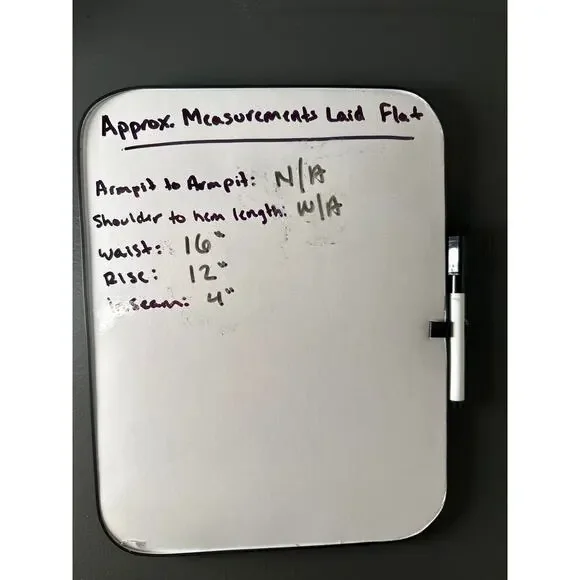 Approx. Measurements Laid Flat
Armpit to Armpit: N/A
Shoulder to hem length: N/A
Waist: 16"
Rise: 12"
Inseam: 4"